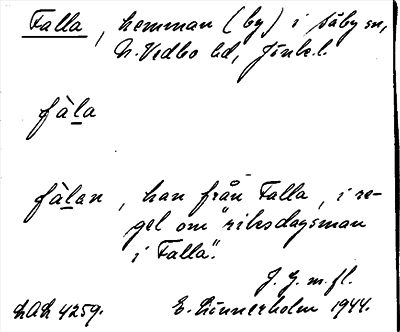 Falla, hemman (by) i Säby sn,
N. Vedbo hd, Jönk. l.
fàla
fàlan, han från Falla, i re-
gel om "riksdagsman
i Falla".
J. G. m. fl.
LAL 4259. E. Linnerholm 1944.